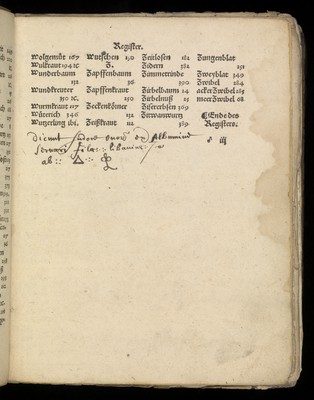 Register.
Wolgemüt 167
Wulkraut 194 ꝛc
Wunderbaum
152
Wundkreuter
350 ꝛc.
Wurmkraut 117
Wüterich 346
Wutzerling ibi.
Wutschen 150
Z.
Zapffenbaum
36
Zapffenkraut
150
Zeckenkörner
152
Zeißkraut 112
Zeitlosen 182
Zidern 382
Zimmetrinde
390
Zirbelbaum 24
Zirbelnuß 25
Zisererbsen 369
Zitwanwurtz
389.
Zungenblat
151
Zweyblat 349
Zwibel 264
ackerZwibel 265
meerZwibel 68
¶ Endo des
Registers.
iij
dicunt ex Allumine
ab :: △